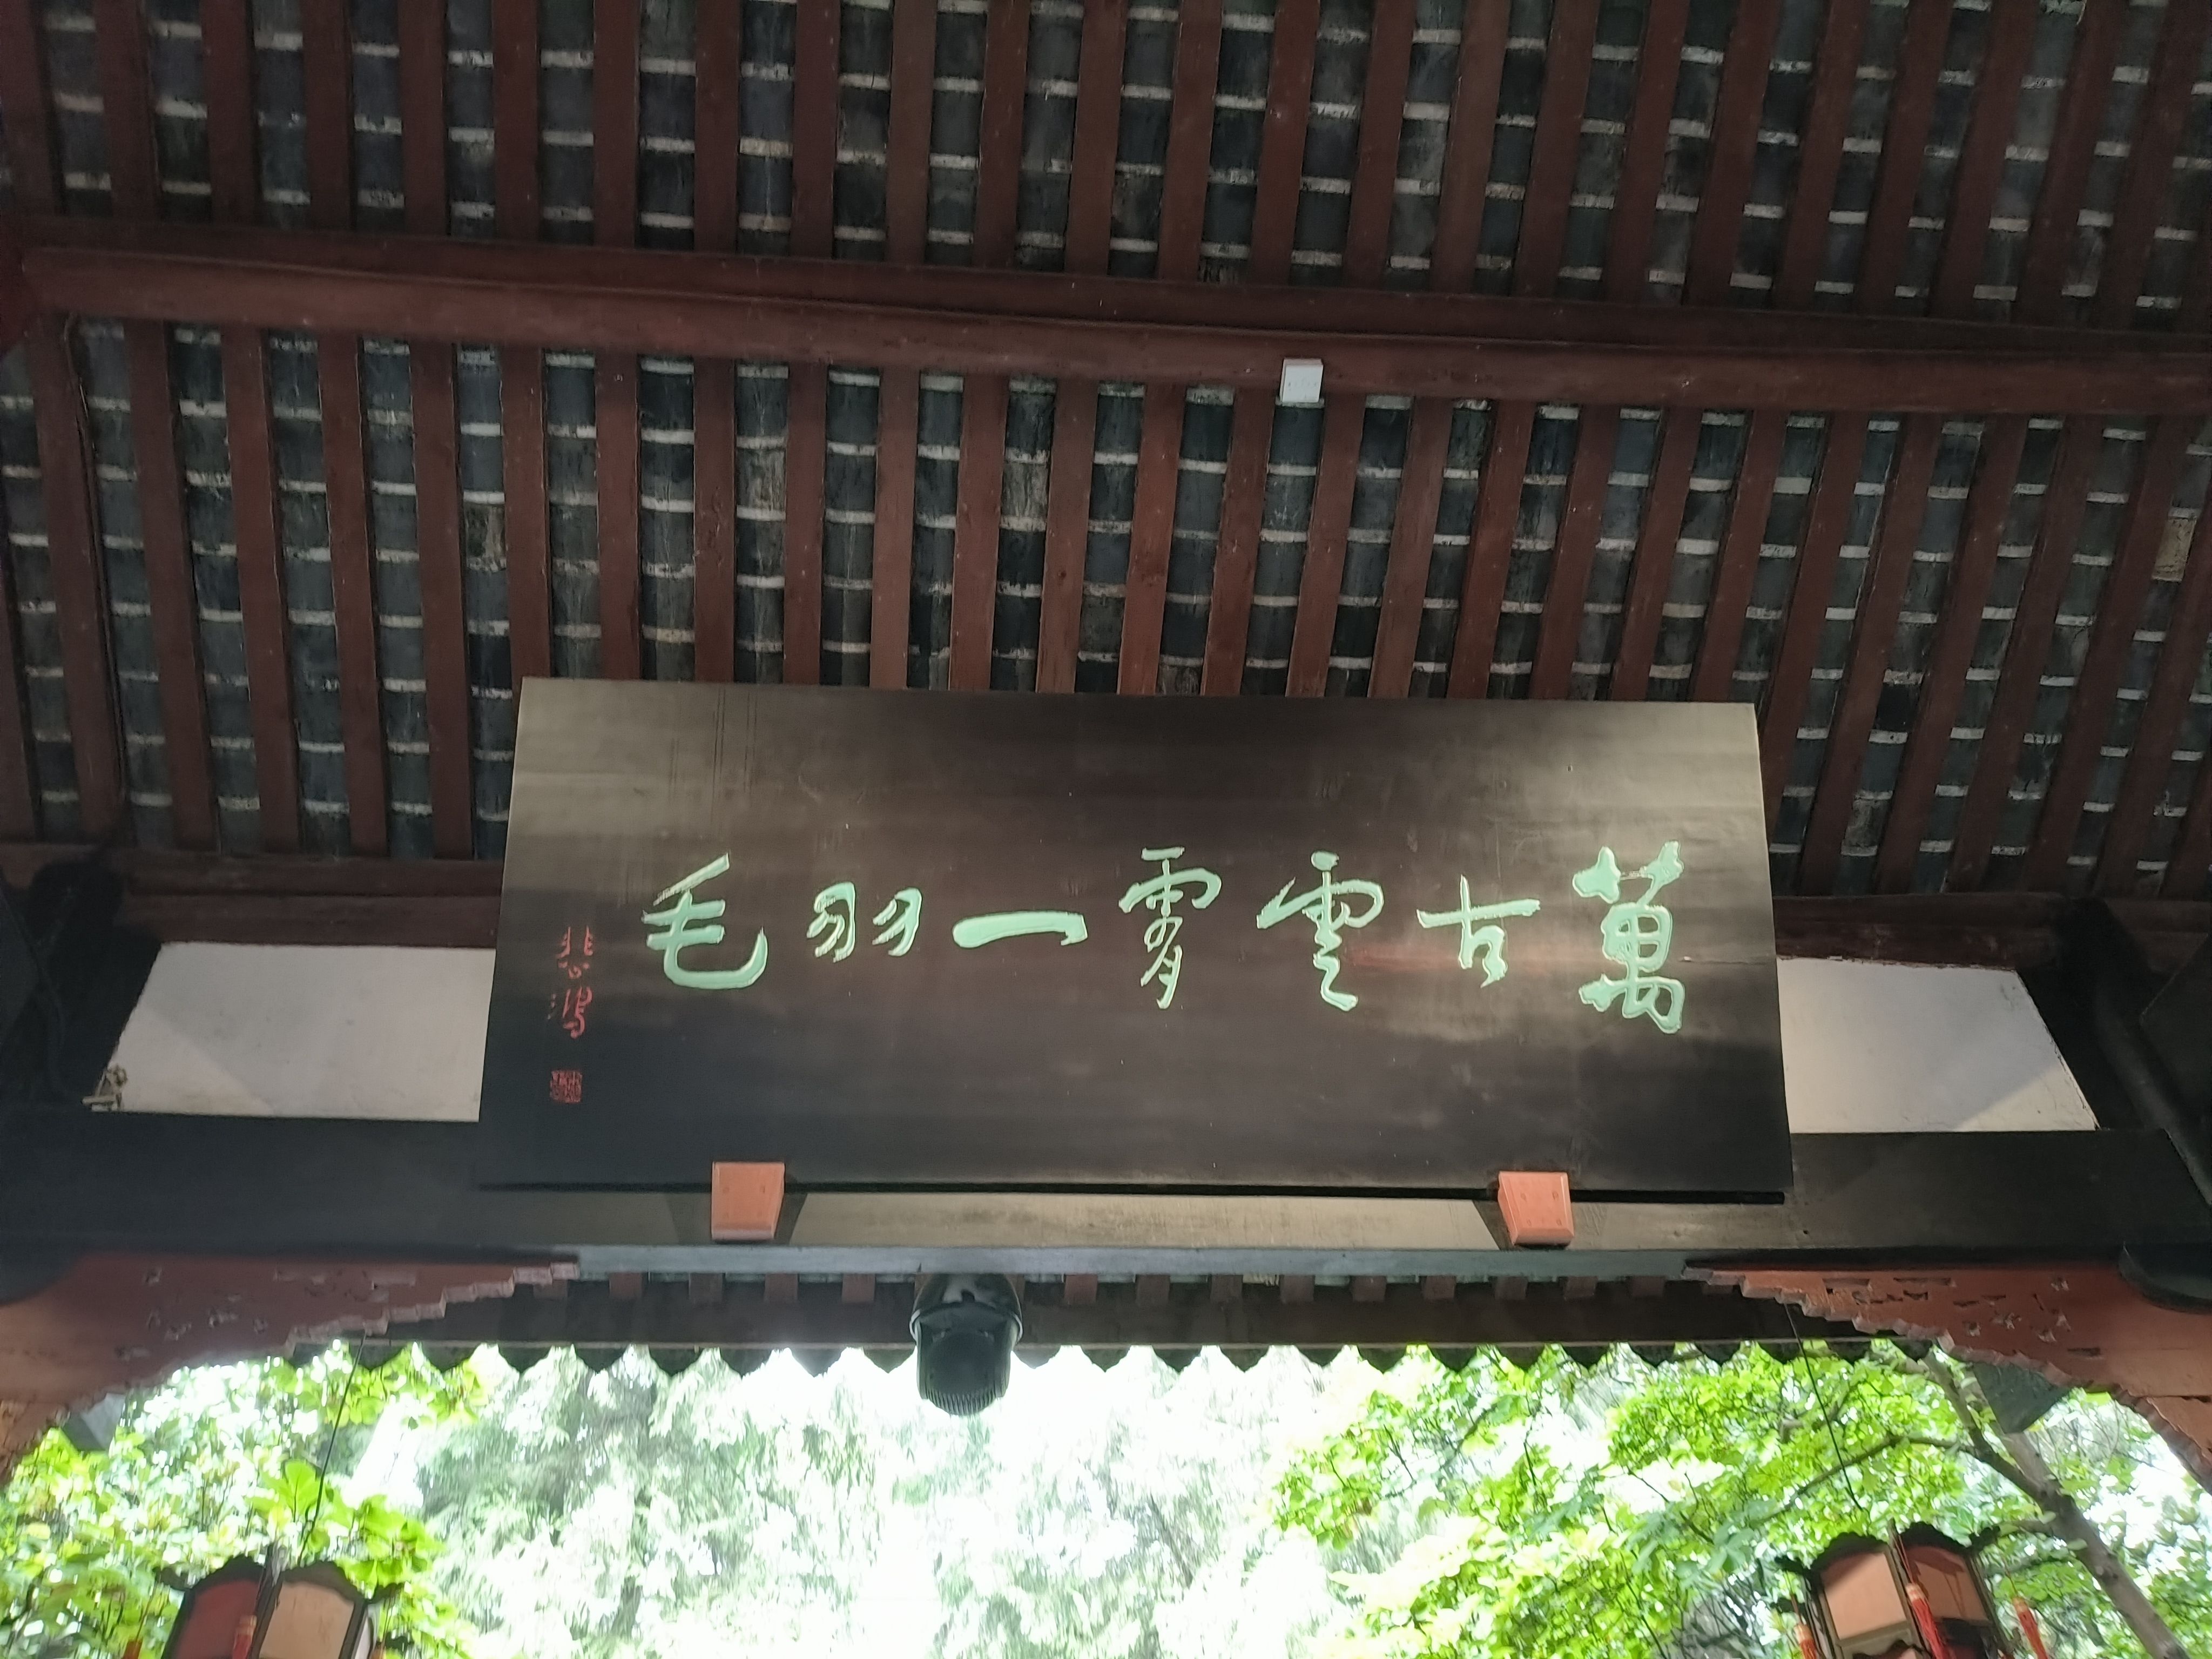 萬古雲霄一羽毛
悲鴻